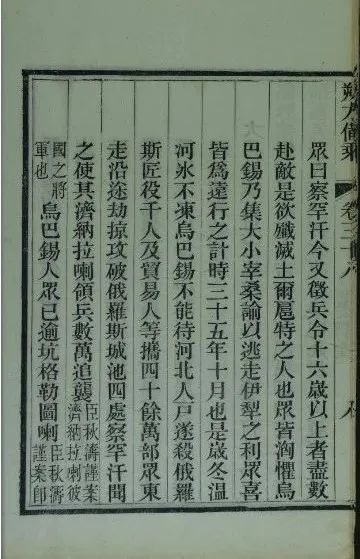 朔方備乘 卷三十八
眾曰察罕汗今又徵兵令十六歲以上者盡數
赴敵是欲殲滅土爾扈特之人也眾皆洶懼烏
巴錫乃集大小宰桑諭以逃走伊犁之利眾喜
皆爲遠行之計時三十五年十月也是歲冬溫
河冰不凍烏巴錫不能待河北人戶遂殺俄羅
斯匠役千人及貿易人等攜四十餘萬部眾東
走沿途劫掠攻破俄羅斯城池四處察罕汗聞
之使其濟納拉喇領兵數萬追襲臣秋濤謹案濟納拉喇彼
國之將軍也烏巴錫人眾已逾坑格勒圖喇臣秋濤謹案即